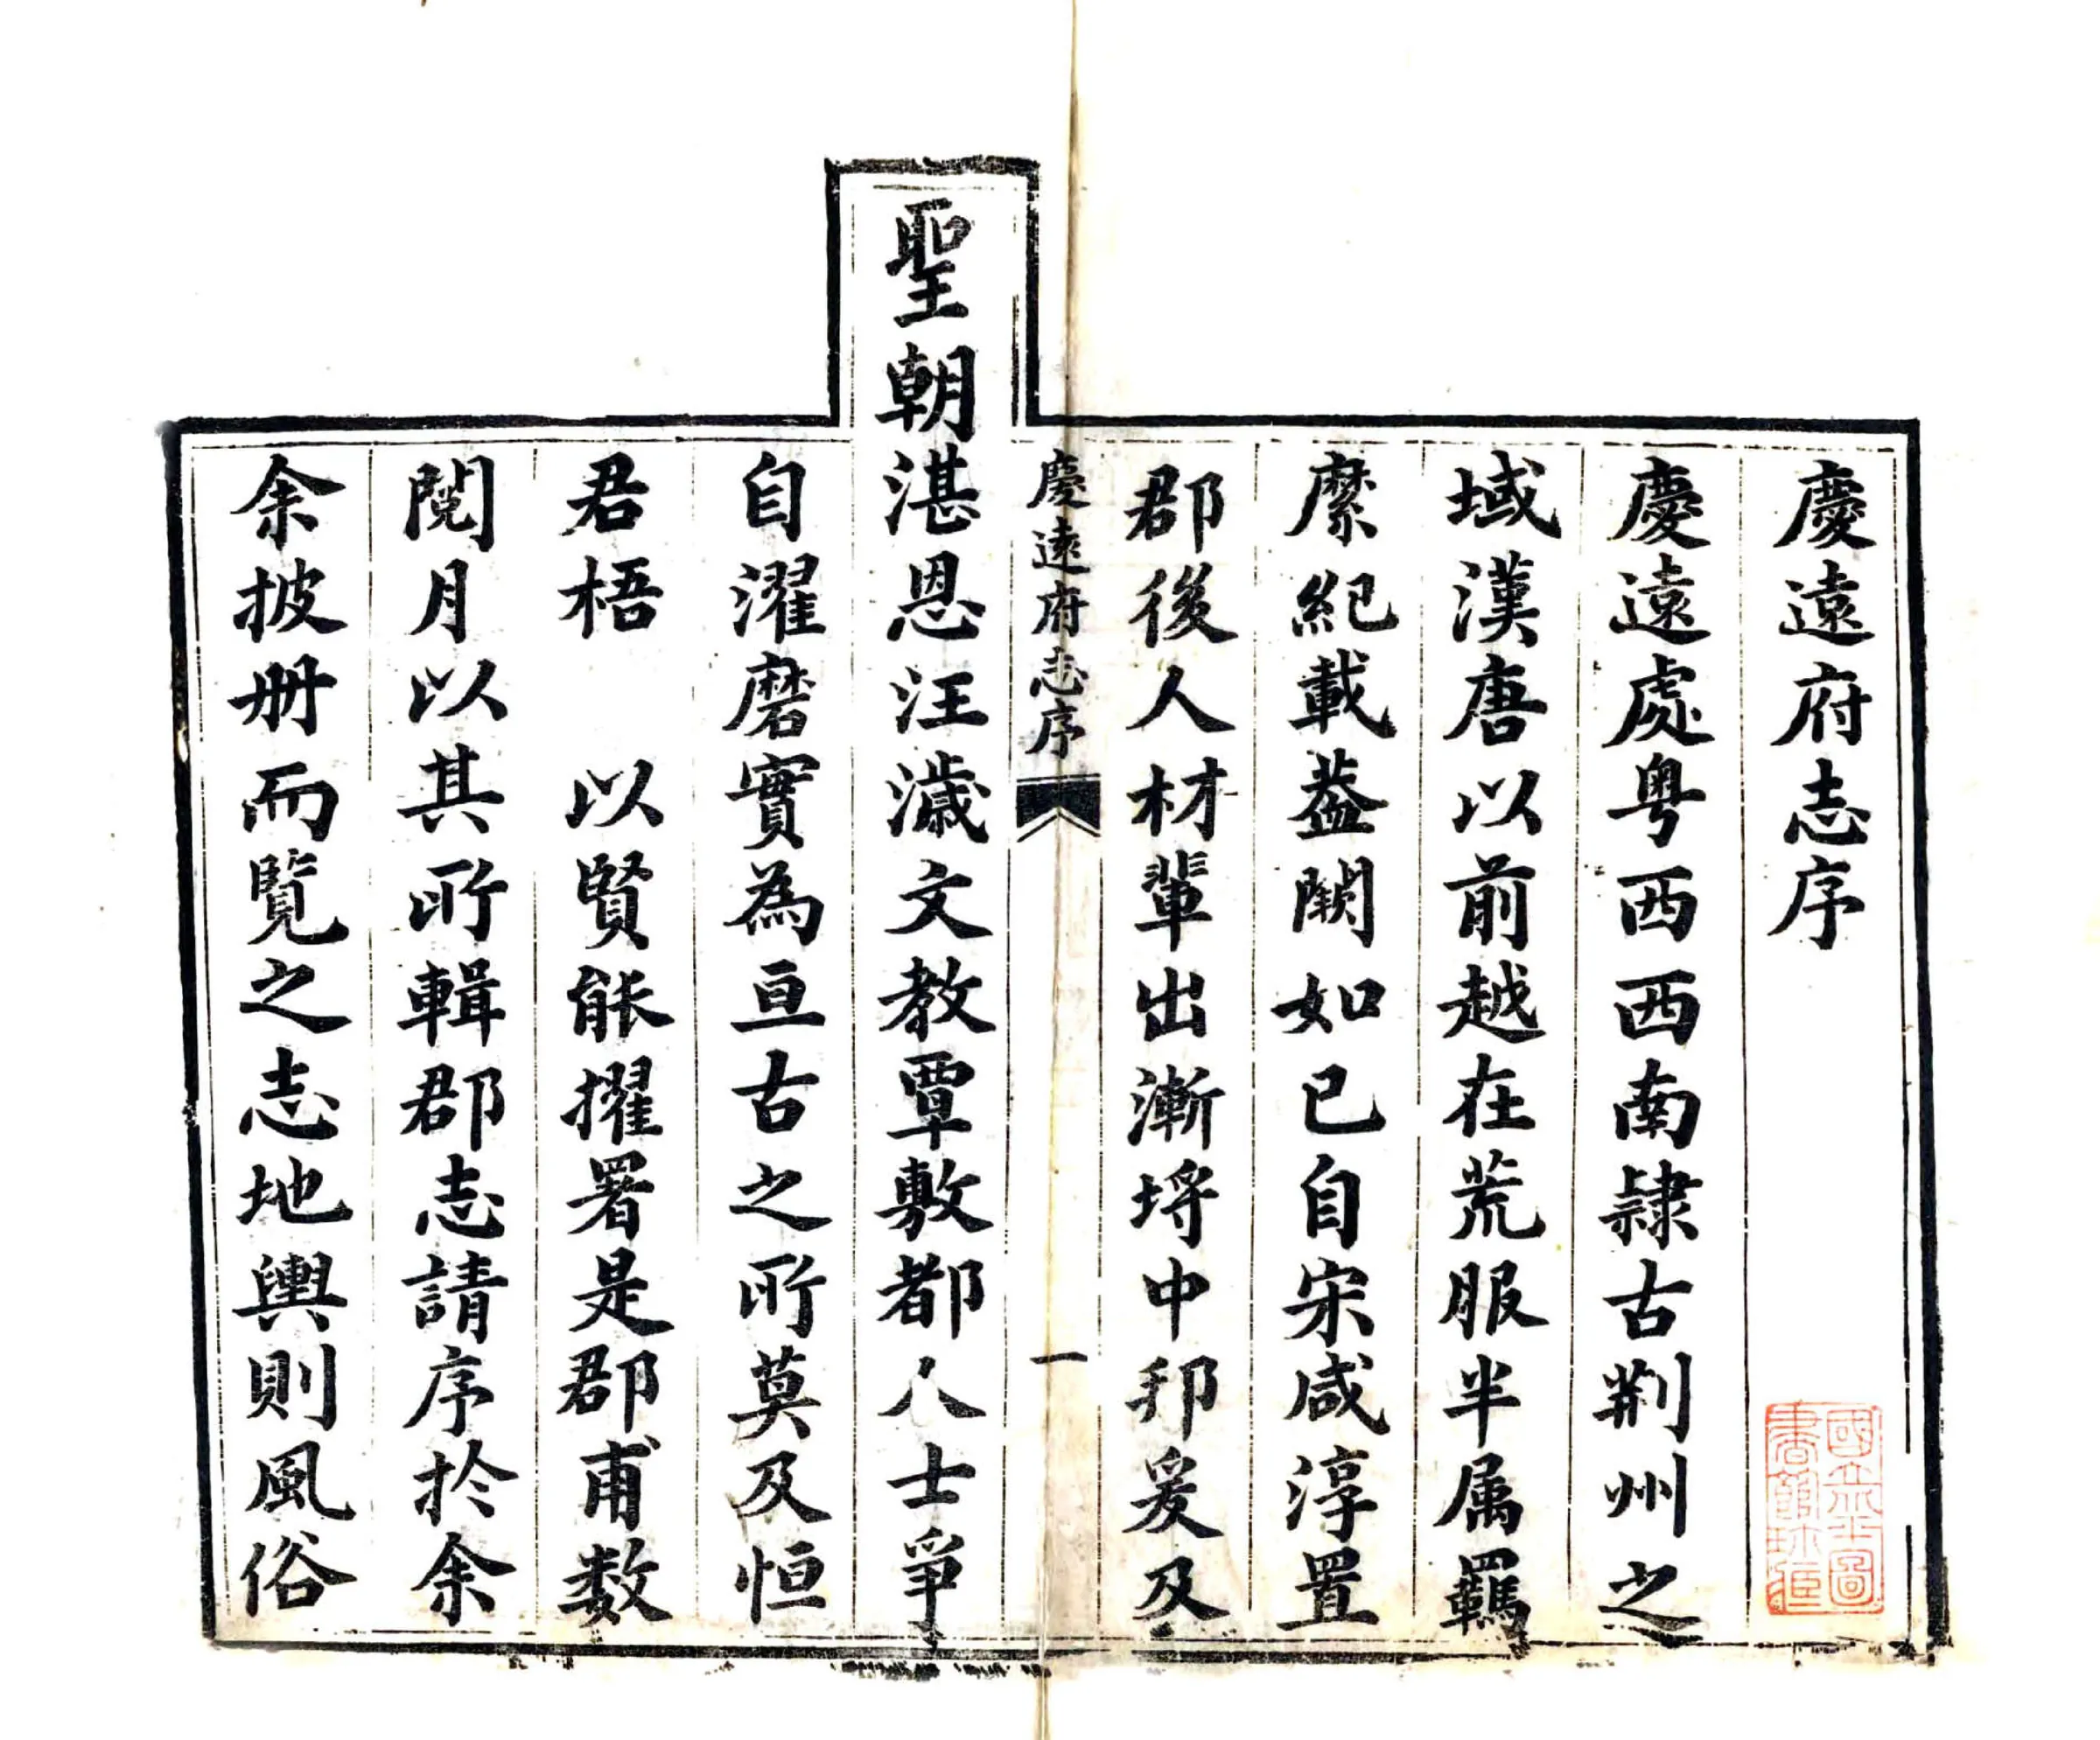 慶遠府志序
慶遠處粵西西南隷古荆州之
域漢唐以前越在荒服半属羈
縻紀載葢闕如已自宋咸淳置
郡後人材軰出漸埒中邦爰及
慶遠府志序
一
聖朝湛恩汪濊文教覃敷都人士爭
自濯磨實為亘古之所莫及恒
君梧 以賢能擢署是郡甫数
閱月以其所輯郡志請序於余
余披册而覽之志地輿則風俗
國立北平圖書館珍藏